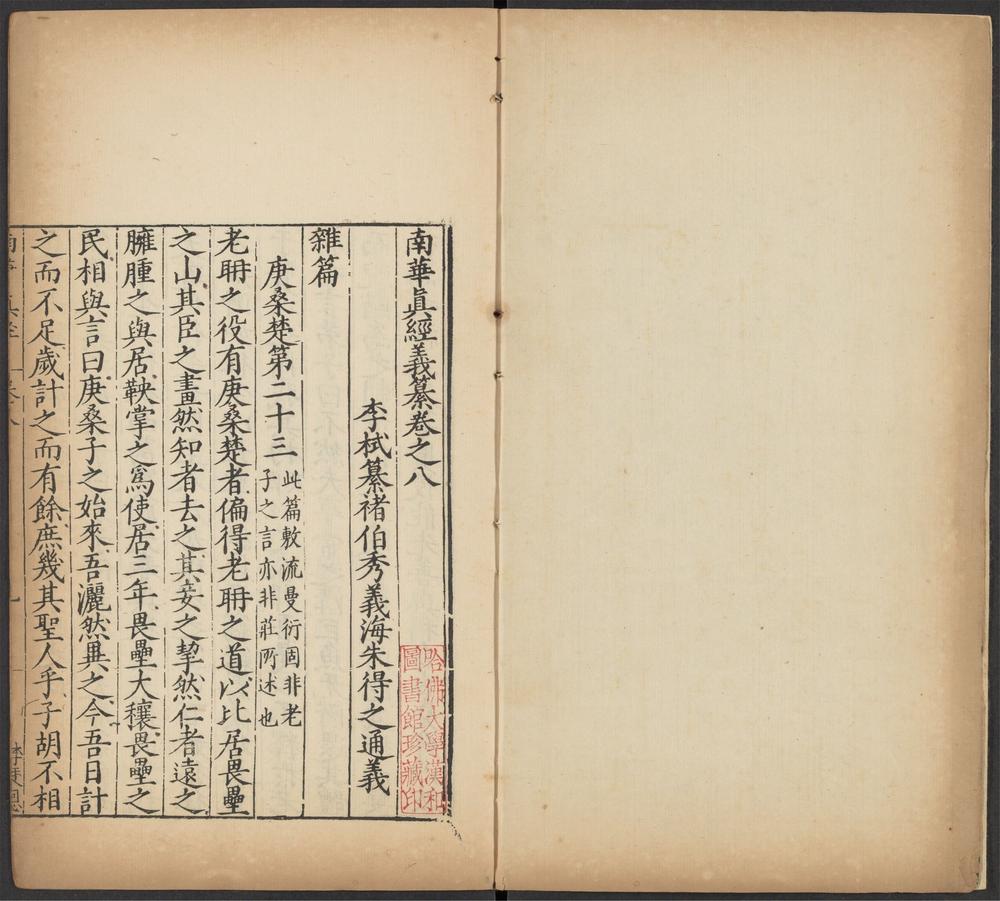 南華眞經義纂卷之八
李栻纂褚伯秀義海朱得之通義
雜篇
庚桑楚第二十三
此篇敷流曼衍固非老
子之言亦非莊所述也
老聃之役有庚桑楚者偏得老聃之道以比居畏壘
之山其臣之畫然知者去之其妾之挈然仁者遠之
臃腫之與居鞅掌之爲使居三年畏壘大穰畏壘之
民相與言曰庚桑子之始來吾灑然異之今吾日計
之而不足歲計之而有餘庶幾其聖人乎子胡不相
哈佛大學漢和
圖書館珍藏印